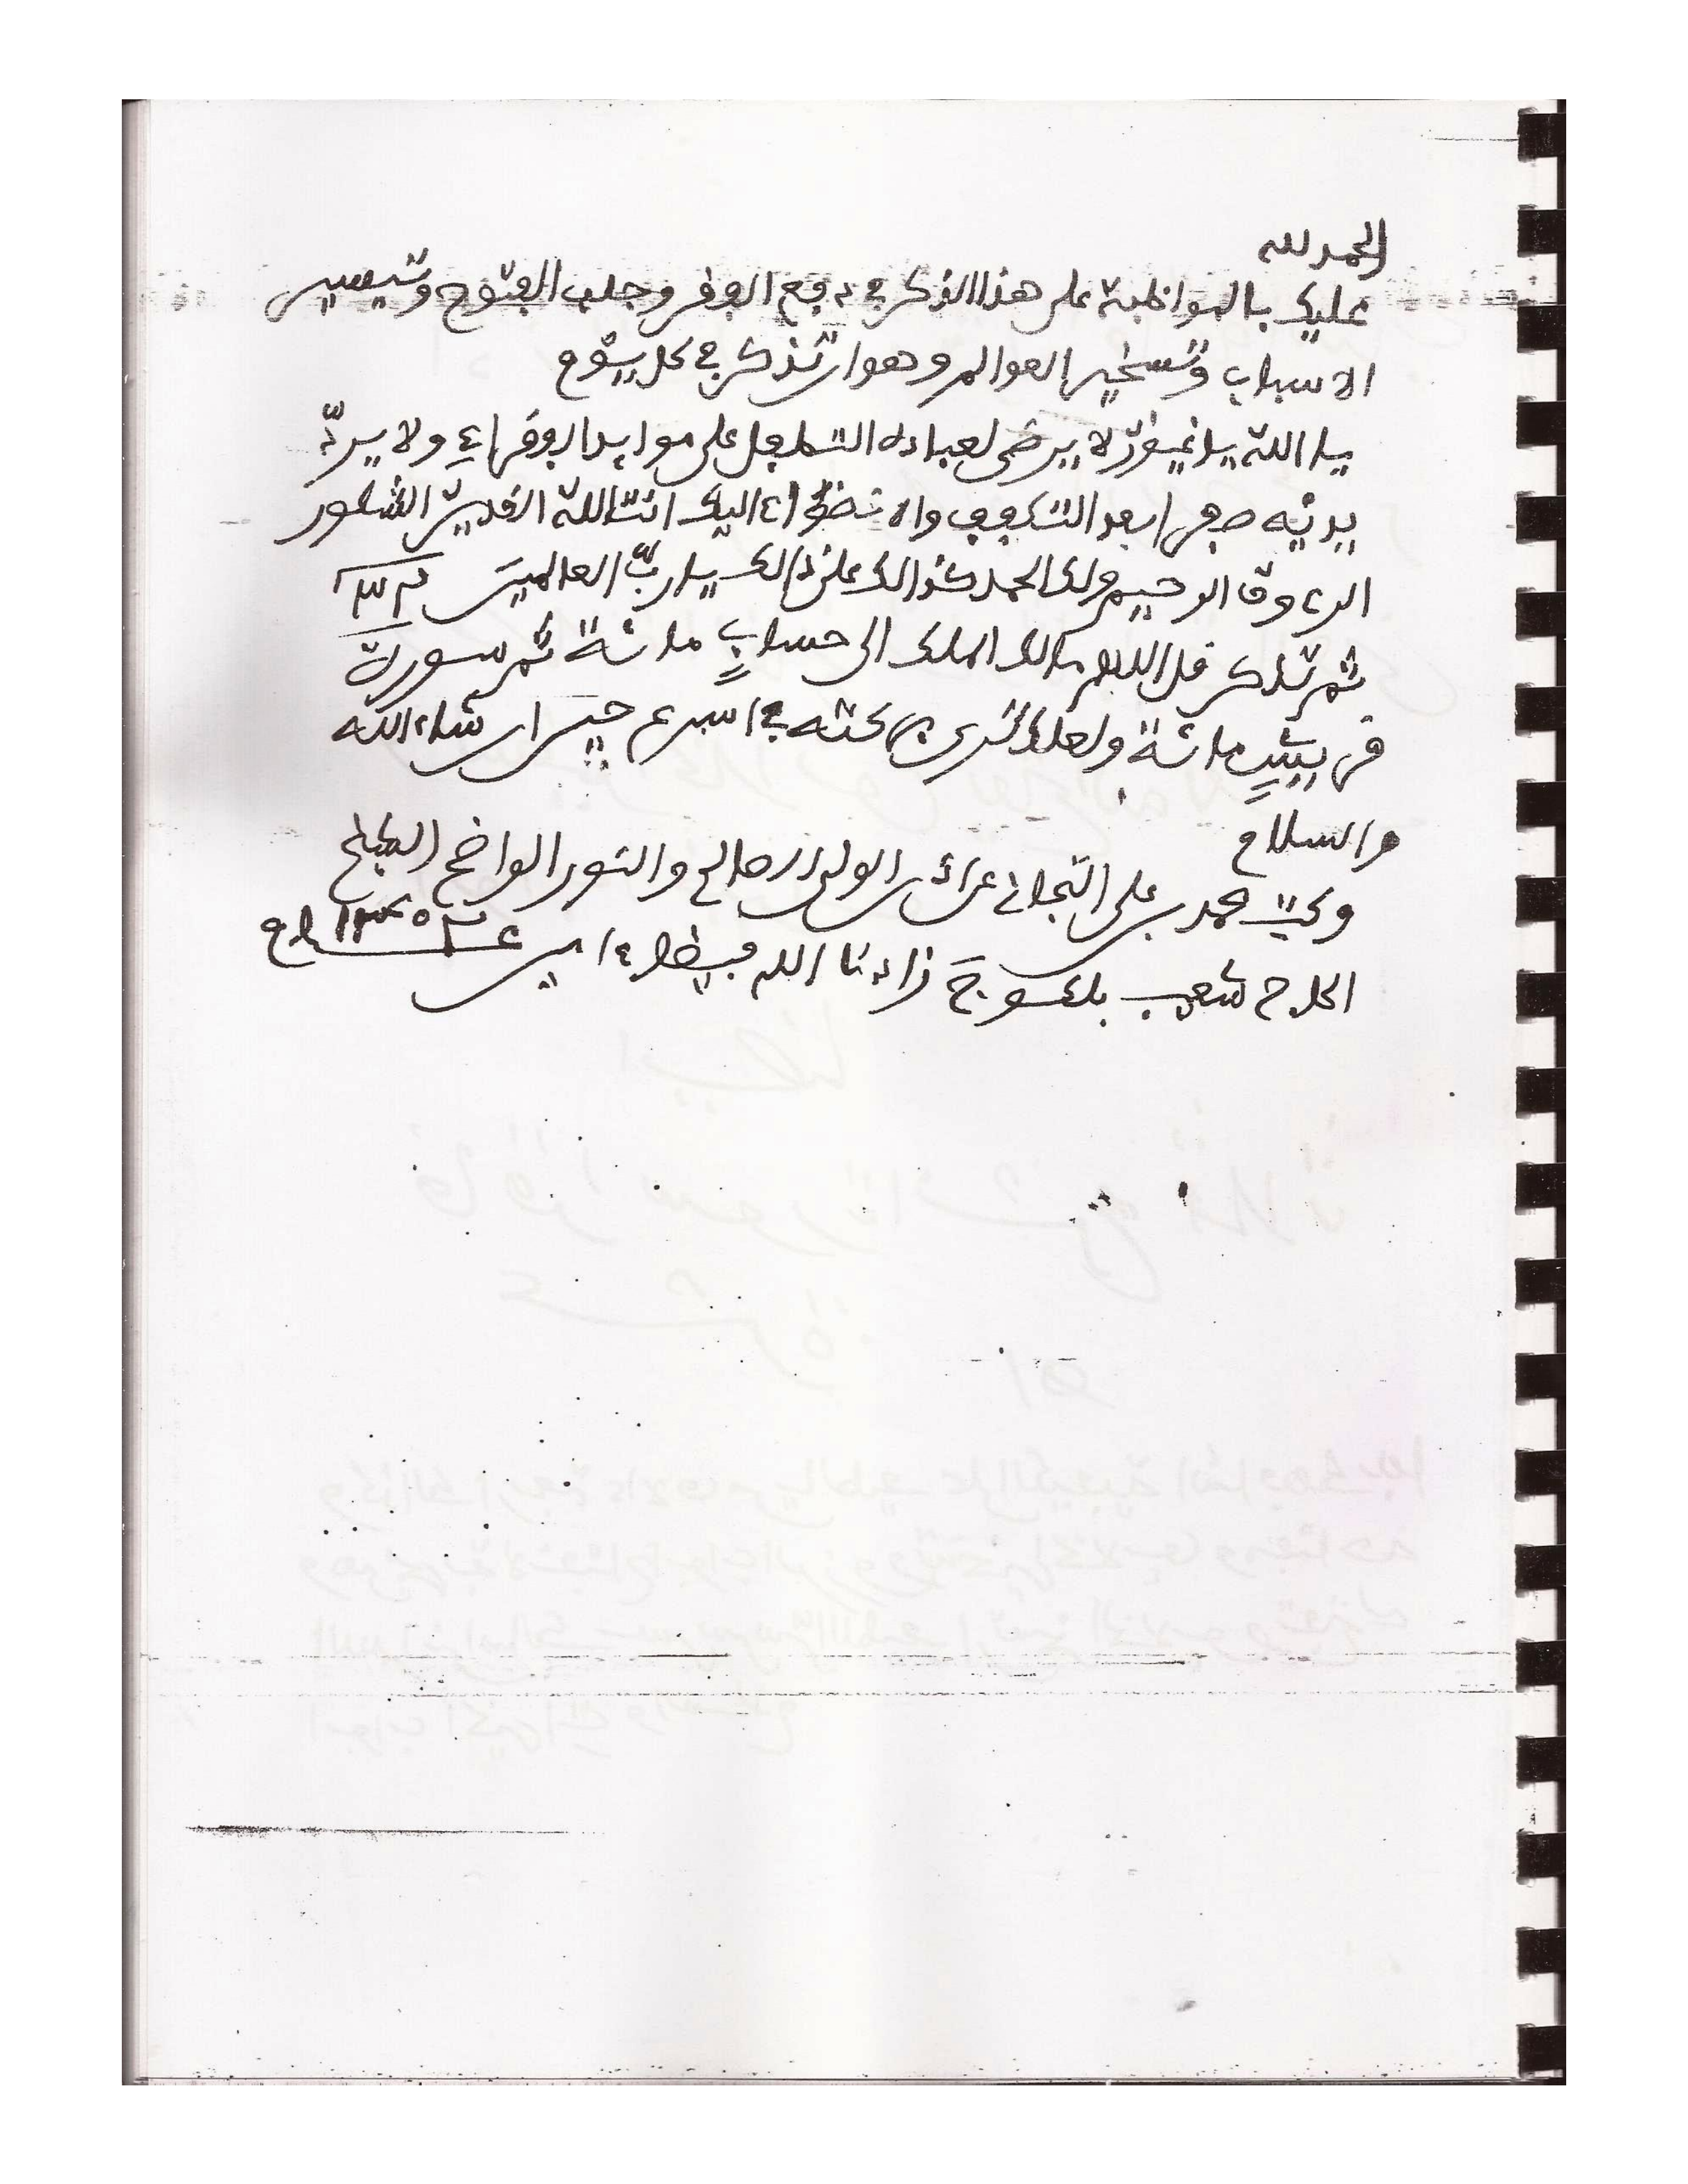 الحمد لله
عليك بالمواظبة على هذا الذكر في دفع الفقر وجلب الفتوح وتيسير
الاسباب وتسخير العوالم وهو ان تذكر في كل يوم
يا الله يا غيور لا يرضى لعباده التطفل على موايد الفقراء ولا يرد
يديه صفرا بعد التكفف والا اليك انت الله القدير الشكور
الرءوف الرحيم ولك الحمد كذالك على ذالك يا رب العالمين
ثم تذكر قل اللهم مالك الملك الى حساب مائة ثم سورة
قريش مائة ولعلك ترى بركته في اسرع حين ان شاء الله
والسلام
وكتب محمد بن علي التجاني عن اذن الولي الصالح والنور الواضح
الحاج شعيب زادنا الله ءامين